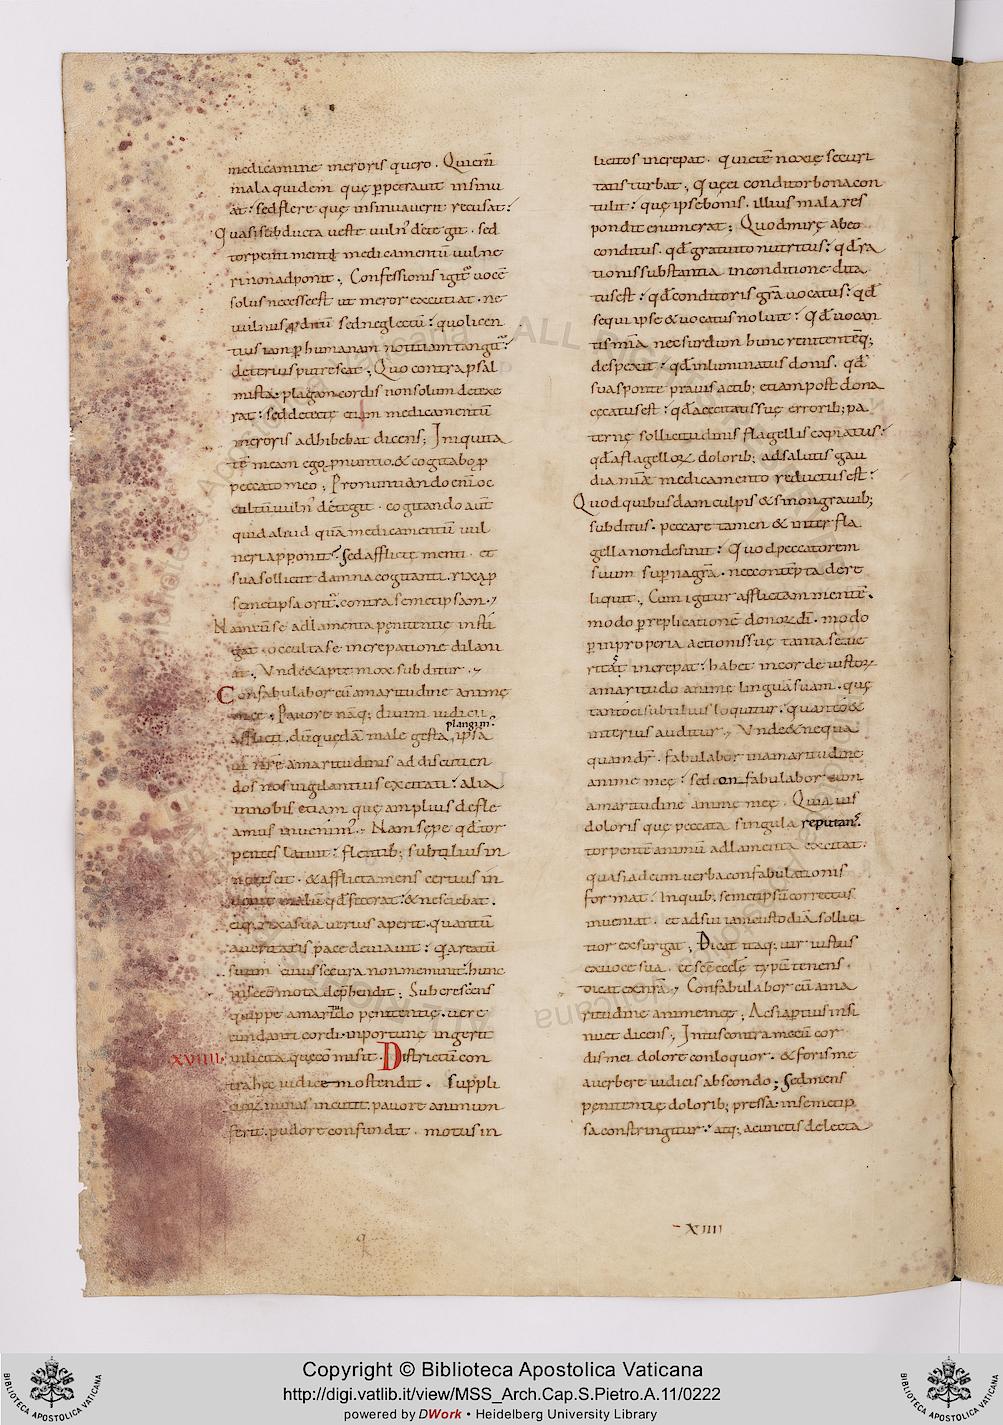 medicamine meroris quero. Qui eni
mala quidem que ꝑpetrauit insinu
at: sed flere que insinuauerit recusat:
Quasi subducta ueste uuln' detegit. sed
torpenti menti medicamentū uulne
ri non adponit. Confessionis igit' uocē
solus necesse est ut meror excutiat. ne
uulnus ꝓditū sed neglectū: quo licen
tius iam ꝑ humanam notitiam tangit':
deterius putrescat; Quo contra psal
mista plagam cordis non solum detexe
rat: sed detecte etiam medicamentū
meroris adhibebat dicens; Iniquita
tē meam ego ꝓnuntio. & cogitabo ꝓ
peccato meo; Pronuntiando eni oc
cultū uuln' detegit. cogitando aut
quid aliud quā medicamentū uul
neri apponit? Sed afflicte menti. et
sua sollicite damna cogitanti. rixa ꝓ
semetipsa orit'. contra semetipsam;
Nam cū se ad lamenta penitentie insti
gat. occulta se increpatione dilani
at; Vnde & apte mox subditur;
Confabulabor cū amaritudine anime
mee; Pauore nāq; diuini iudicii
plangim'.
afflicti. dū quedā male gesta, ipsa
ui nr̄e amaritudinis ad discutien
dos nos uigilantius excitati: alia
in nobis etiam que amplius defle
amus inuenim'; Nam sepe qd̄ tor
pentes latuit: flentib; subtilius in
notescit. & afflicta mens certius in
uenit malū qd̄ fecerat: & nesciebat.
eiq. rixa sua uerius aperit. quantū
a ueritatis pace deuiauit: q̄a reatū
suum cuius secura non meminit: hunc
in se cōmota deꝓhendit; Subcrescens
quippe amaritudo penitentie. uere
cundanti cordi inportune ingerit
XVIIII. inlicita. que cōmisit. Districtū con
tra hec iudicem ostendit. suppli
ciorum minas incutit. pauore animum
ferit. pudore confundit. motus in
licitos increpat. quietē noxie securi
tatis turbat; Que ei conditor bona con
tulit: que ipse bonis illius mala res
pondit enumerat; Quod mire ab eo
conditus. qd̄ gratuito nutritus: qd̄ ra
tionis substantia in conditione dita
tus est: qd̄ conditoris gr̄a uocatus: qd̄
sequi ipse & uocatus noluit: qd̄ uocan
tis mīa nec surdum hunc renitentēq;
despexit: qd̄ inluminatus donis. qd̄
sua sponte prauis actib; etiam post dona
cecatus est: qd̄ a cecitatis sue errorib; pa
terne sollicitudinis flagellis expiatus:
qd̄ a flagellorum dolorib; ad salutis gau
dia mīe medicamento reductus est:
Quod quibusdam culpis & si non grauib;
subditus. peccare tamen & inter fla
gella non desinit: Quod peccatorem
suum superna gr̄a. nec contēpta dere
liquit; Cum igitur afflictam mentē.
modo ꝑ replicationē donorum dī. modo
ꝑ inproperia actionis sue tanta seue
ritas increpat: habet in corde iustorum
amaritudo anime linguā suam. que
tanto ei subtilius loquitur. quanto &
interius auditur; Vnde & nequa
quam dr̄. fabulabor in amaritudine
anime mee: sed confabulabor cum
amaritudine anime mee. Quia uis
doloris que peccata singula reputans.
torpentē animū ad lamenta excitat:
quasi ad eum uerba confabulationis
format. In quib. semetipsū correctus
inueniat. et ad sui iam custodiā sollici
tior exsurgat; Dicat itaq; uir iustus
ex uoce sua. et sc̄e eccle typū tenens.
dicat ex nr̄a; Confabulabor cū ama
ritudine anime mee; Ac si aptius insi
nuet dicens; Intus contra meum cor
dis mei dolore conloquor. & foris me
a uerbere iudicis abscondo; Sed mens
penitentie dolorib; pressa. in semetip
sa constringitur: atq; a cunctis delecta
XIIII